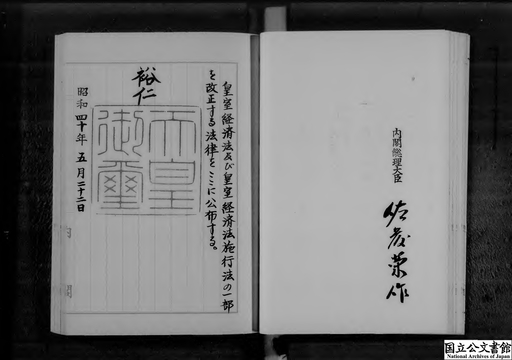 皇室経済法及び皇室経済法施行法の一部
を改正する法律をここに公布する。
裕仁
天皇
御璽
昭和四十年五月二十二日
内閣総理大臣
佐藤榮作
国立公文書館
National Archives of Japan